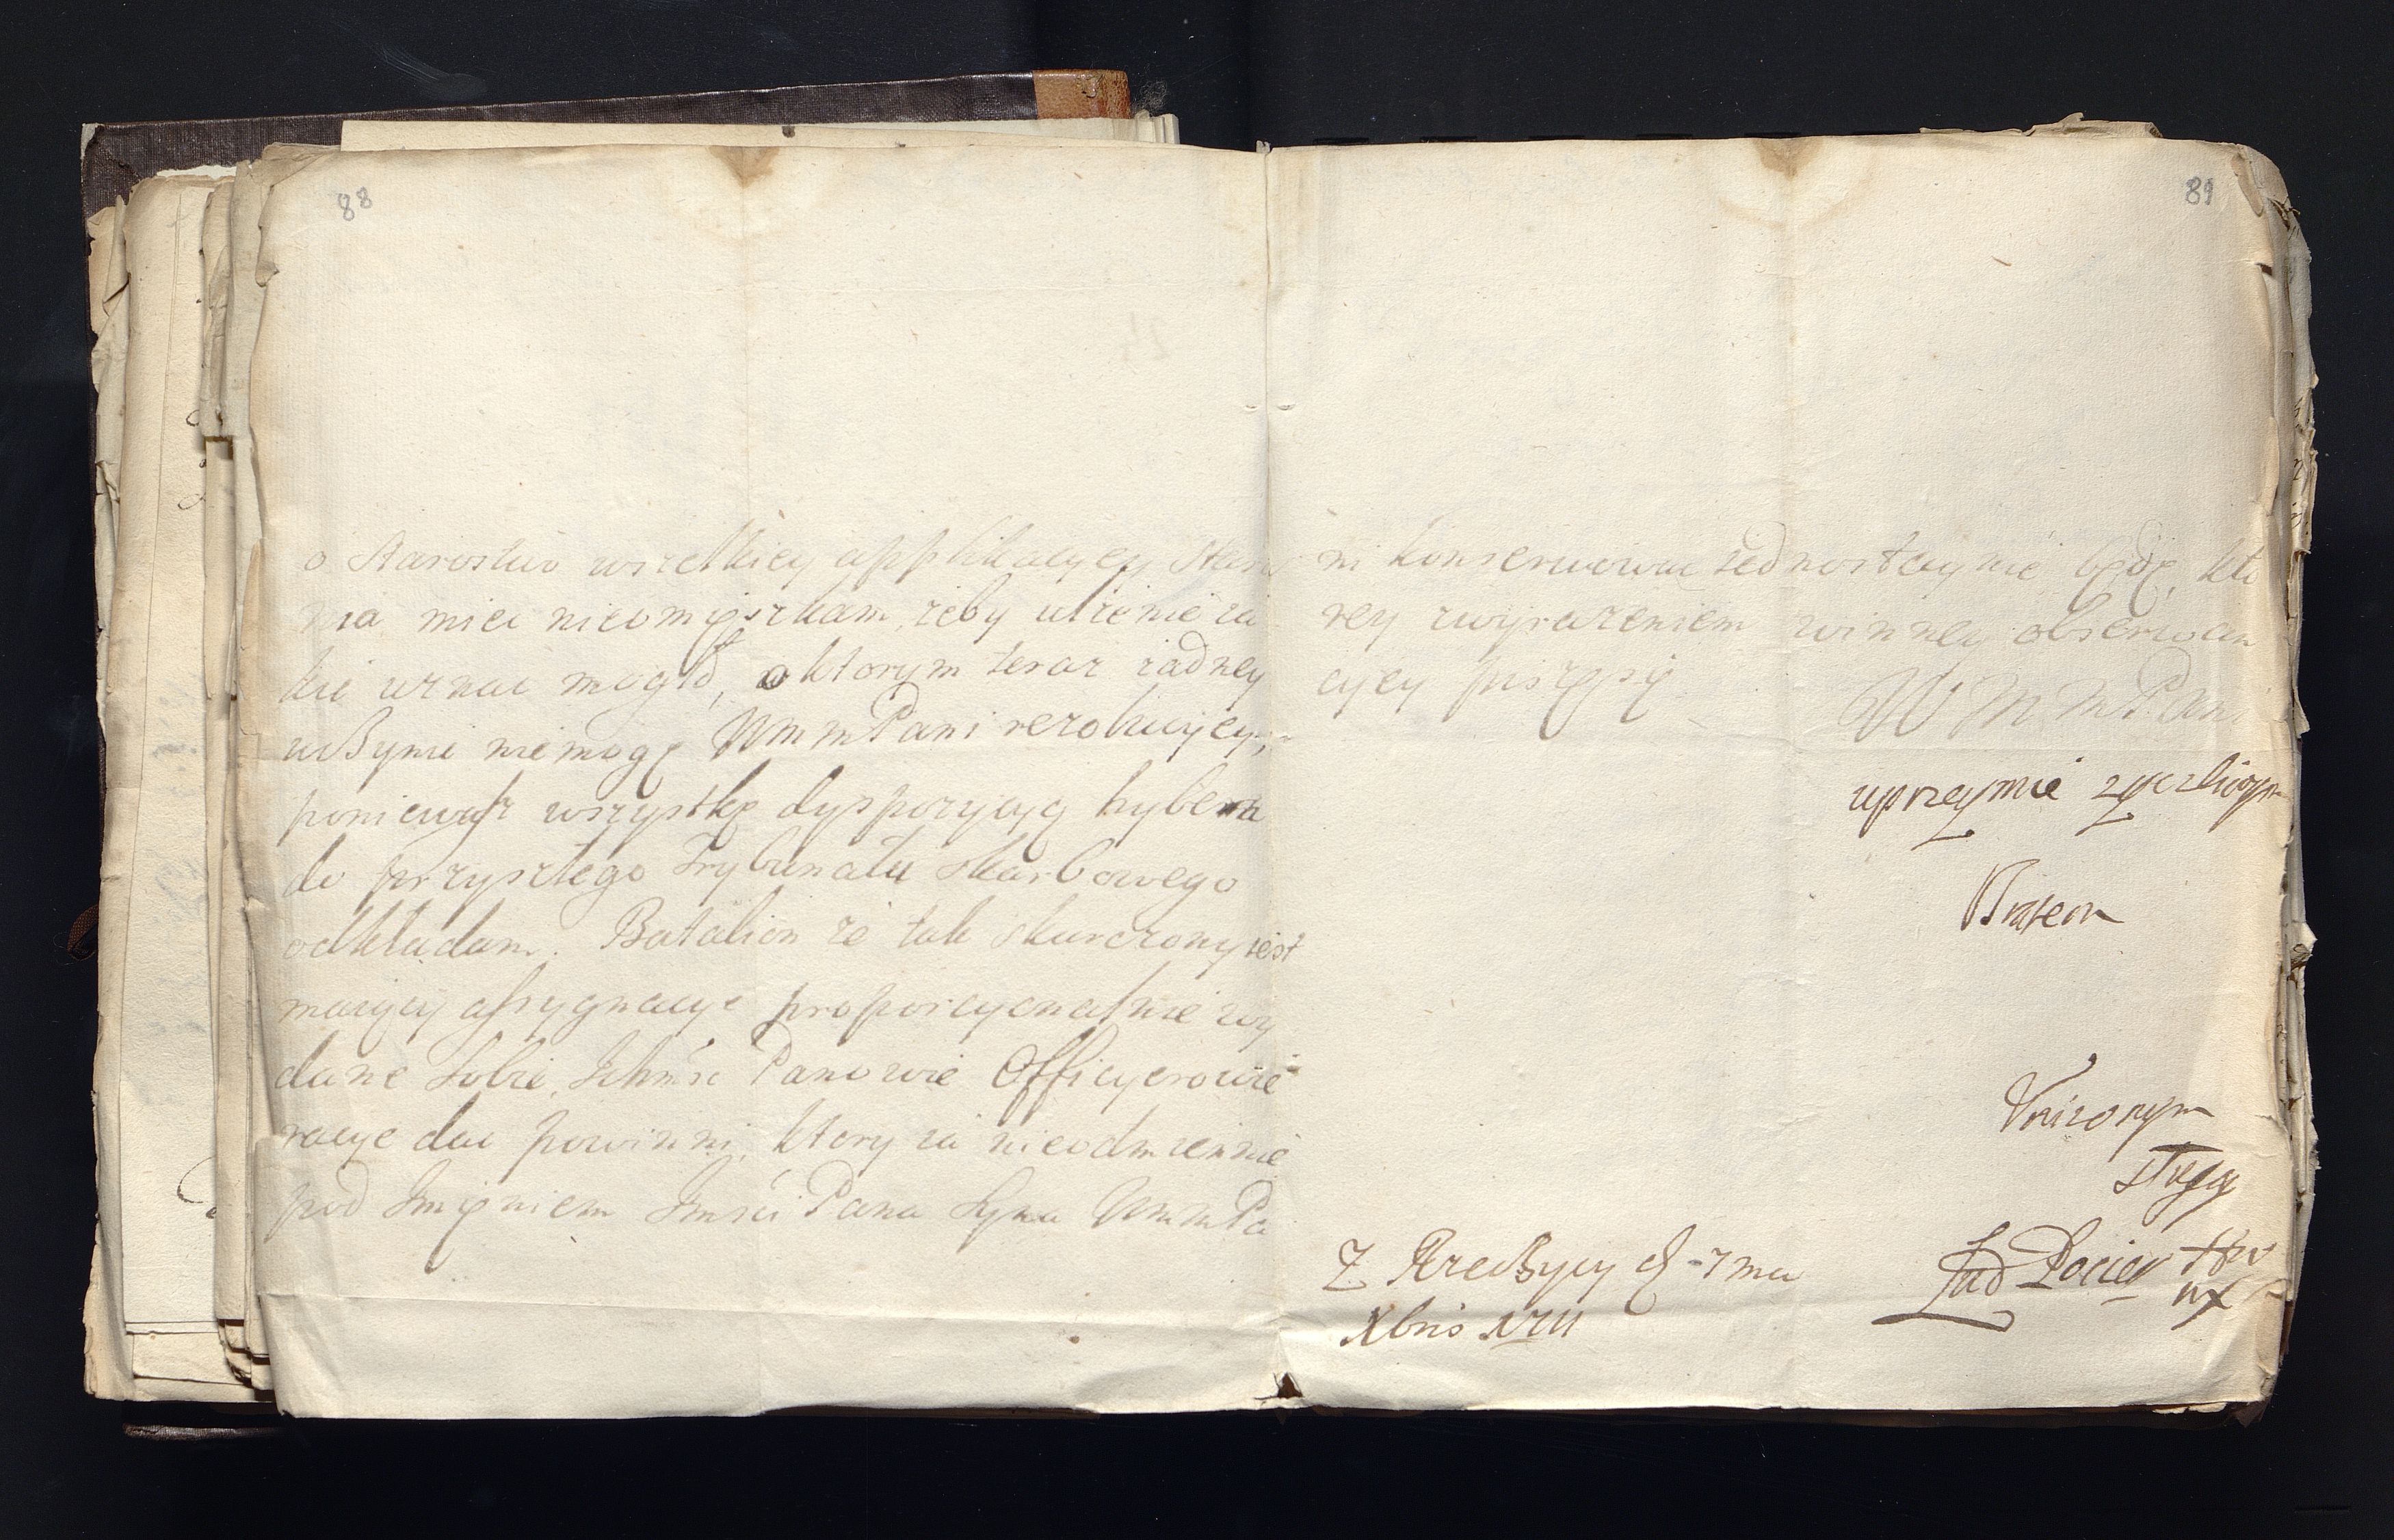 88
o Starostwo wszelkiey applikacyey Stara
nia miec nieomięszkam, zeby ulzenie ia
kie uznac mogło, o ktorym teraz zadney
uczynic niemogę WmmPani rezolucyey,
poniewasz wszystkę dyspozycyą hybern
do przyszłego Trybunału Skarbowego
odkładam. Batalion ze tak skurczony iest
maiący assygnacye proporcyonalnie wy
dane Sobie, Ichmsc Panowie Officyerowie
racye dac powinni, ktory ia nieodmiennie
pod Imięniem Imsci Pana Syna WmmPa
89
ni konserwowac iednostaynie będę, kto
rey zwyrazeniem winney obserwan
cyey piszę się
W M M Pani
uprzeymie zyczliwym
Bratem
Unizonym
sługą
Z Rzeczycy d 7 ma
Xbris 1711
Lud Pociey